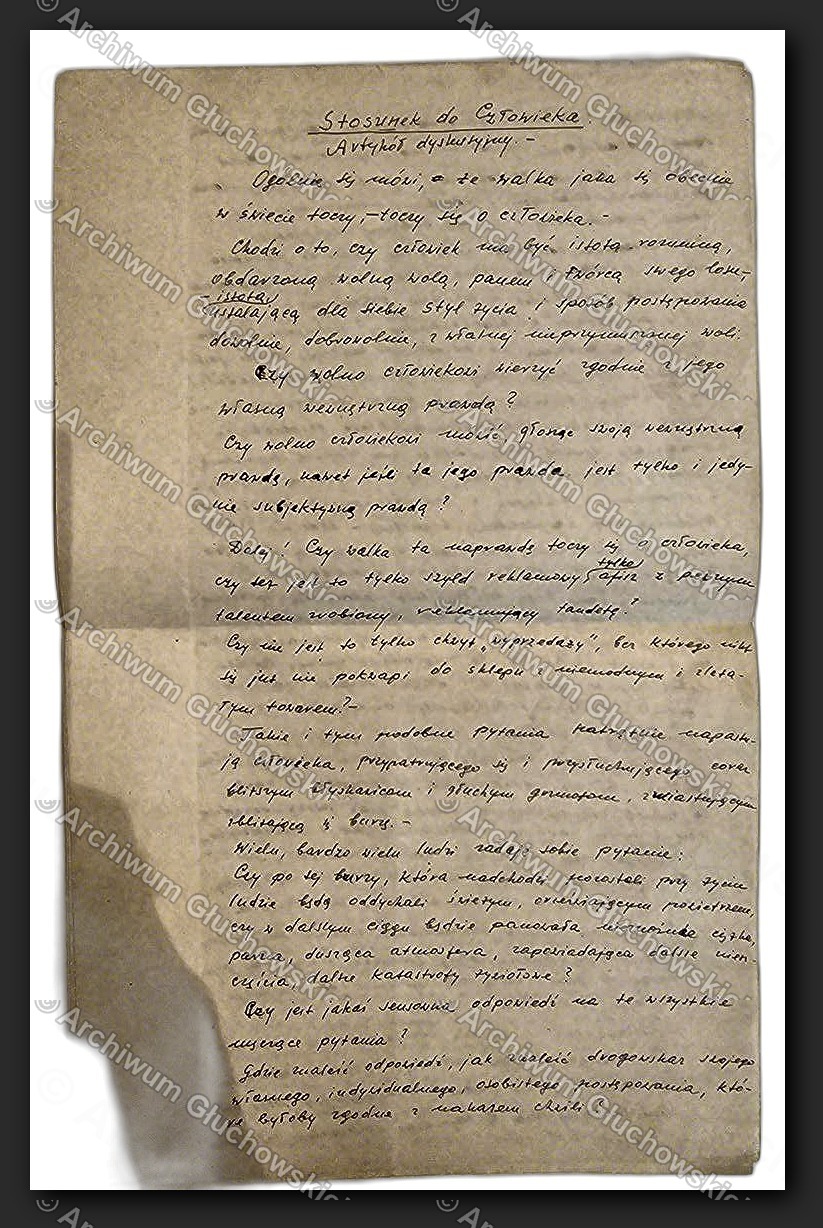 Stosunek do Człowieka.
Artykół dyskusyjny. –
Ogólnie się mówi, że walka jaka się obecnie
w świecie toczy, – toczy się o człowieka. –
Chodzi o to, czy człowiek ma być istotą rozumną,
obdarzoną wolną wolą, panem i twórcą swego losu, –
– istotą
ustalającą dla siebie styl życia i sposób postępowania
dowolnie, dobrowolnie, z własnej nieprzymuszonej woli.
Czy wolno człowiekowi wierzyć zgodnie z jego
własną wewnętrzną prawdą?
Czy wolno człowiekowi mówić, głosząc swoją wewnętrzną
prawdę, nawet jeśli ta jego prawda jest tylko i jedy-
nie subjektywną prawdą?
Dalej! Czy walka ta naprawdę toczy się o człowieka,
tylko
czy też jest to tylko szyld reklamowy, afisz z pewnym
talentem zrobiony, reklamujący tandetę?
Czy nie jest to tylko chwyt „wyprzedaży", bez którego nikt
się już nie pokwapi do sklepu z niemodnym i zleża-
łym towarem? –
Takie i tym podobne pytania natrętnie napastu-
ją człowieka, przypatrującego się i przysłuchującego coraz
bliższym błyskawicom i głuchym grzmotom, zwiastującym
zbliżającą się burzę. –
Wielu, bardzo wielu ludzi zadaje sobie pytanie:
Czy po tej burzy, która nadchodzi pozostali przy życiu
ludzie będą oddychali świeżym, orzeźwiającym powietrzem,
czy w dalszym ciągu będzie panowała ciężka,
parna, dusząca atmosfera, zapowiadająca dalsze niesz-
częścia, dalsze katastrofy żywiołowe?
Czy jest jakaś sensowna odpowiedź na te wszystkie
męczące pytania?
Gdzie znaleźć odpowiedź, jak znaleźć drogowskaz swojego
własnego, indywidualnego, osobistego postępowania, któ-
re byłoby zgodne z nakazem chwili?
© Archiwum Głuchowskich